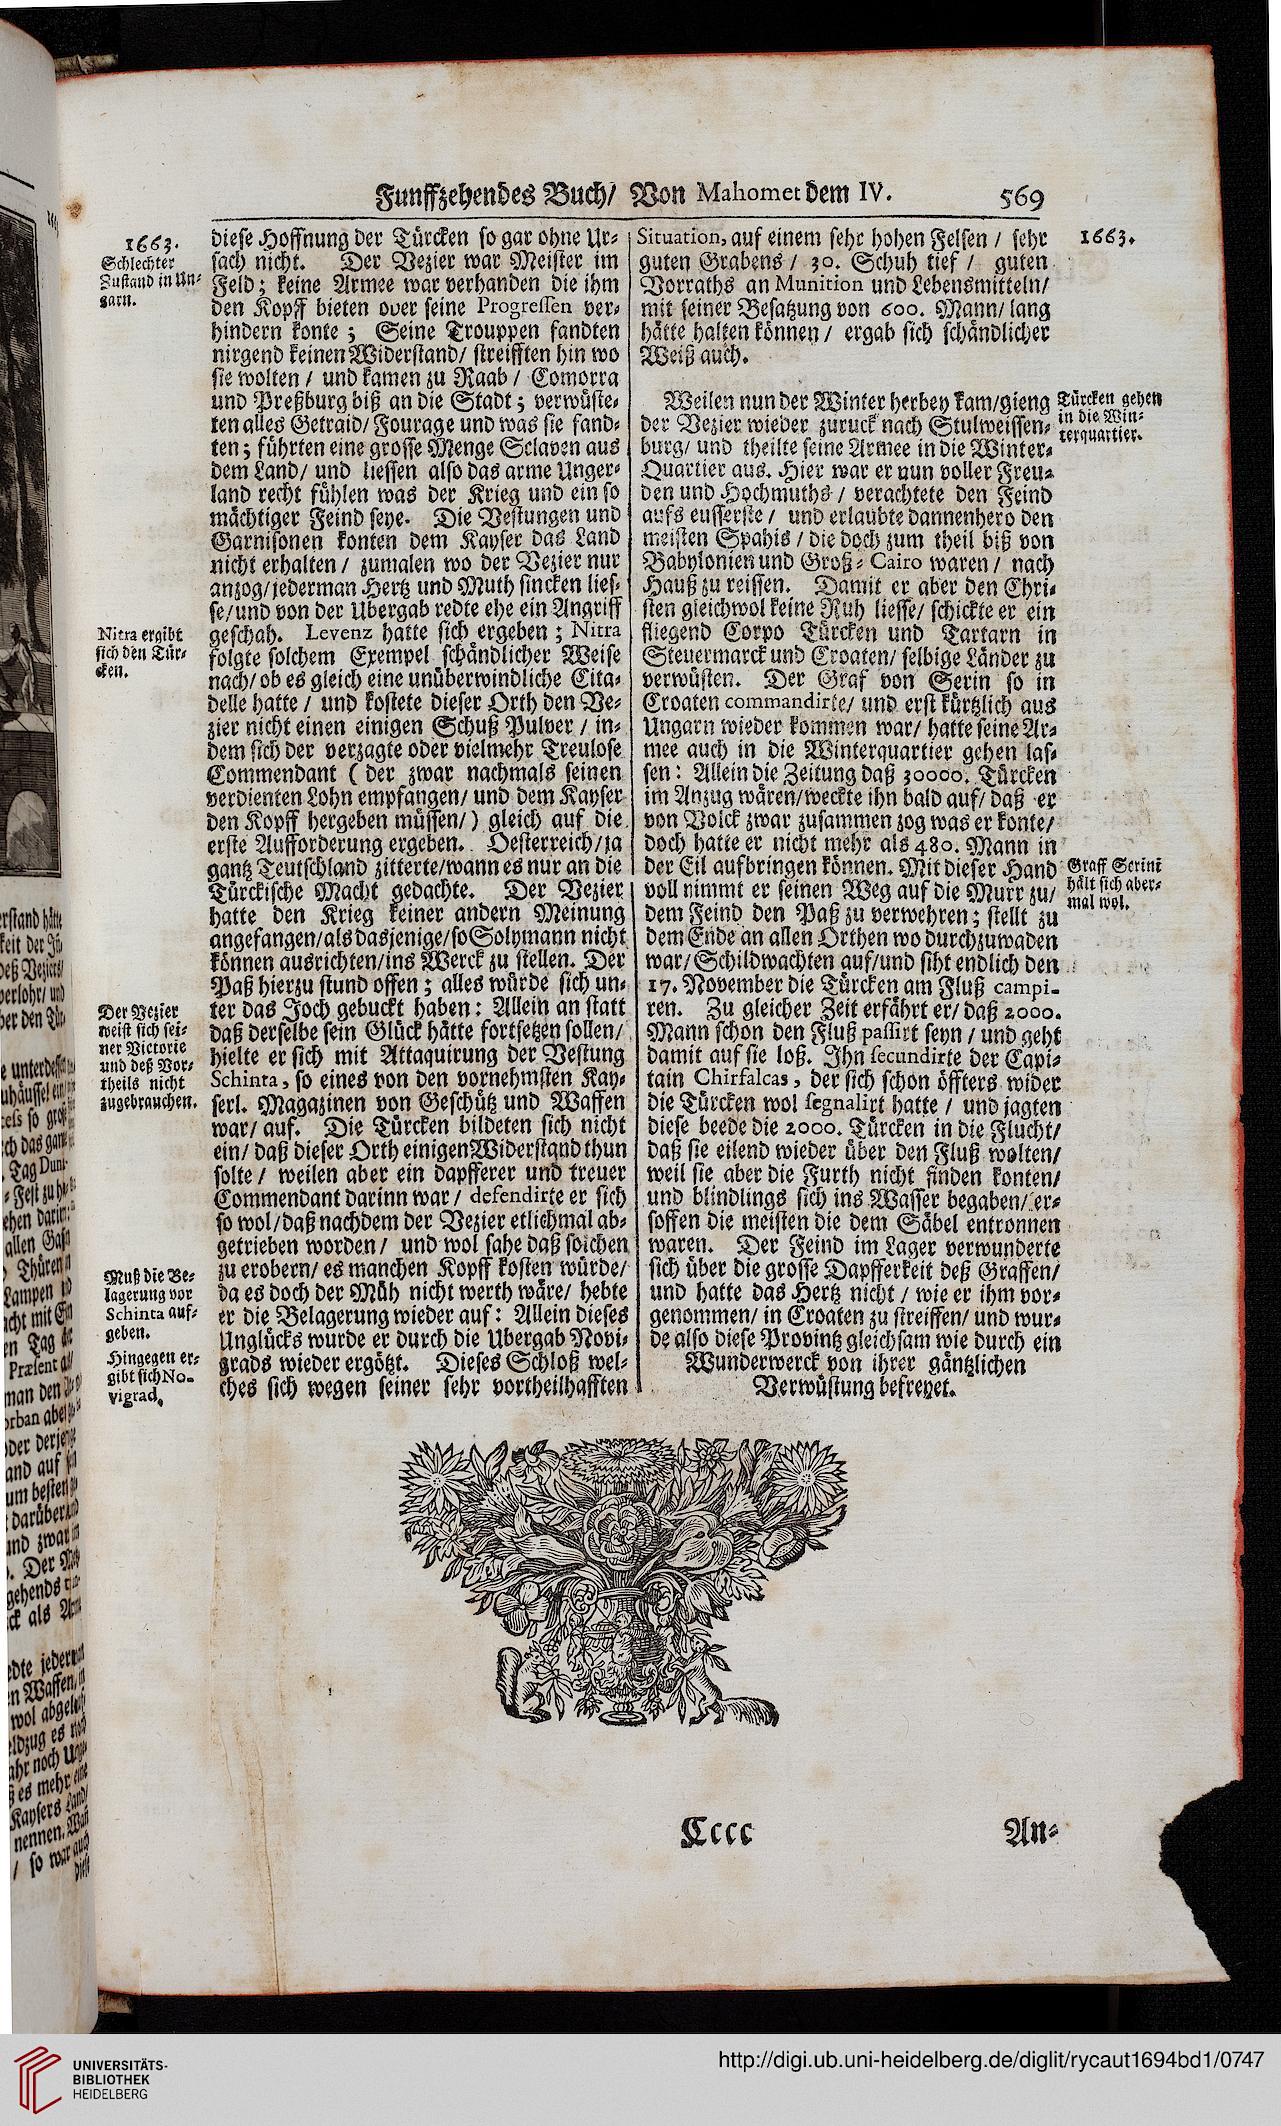 Funffzehendes Buch/ Von Mahomet dem IV. 569
1663.
Schlechter
Zustand in Un-
garn.
diese Hoffnung der Türcken so gar ohne Ur-
sach nicht. Der Vezier war Meister im
Feld; keine Armee war verhanden die ihm
den Kopff bieten oder seine Progressen ver-
hindern konte; Seine Trouppen fandten
nirgend keinen Widerstand/ streifften hin wo
sie wolten/ und kamen zu Raab/ Comorra
und Preßburg biß an die Stadt; verwüste-
ten alles Getraid/ Fourage und was sie fand-
ten; führten eine grosse Menge Sclaven aus
dem Land/ und liessen also das arme Unger-
land recht fühlen was der Krieg und ein so
mächtiger Feind seye. Die Vestungen und
Garnisonen konten dem Kayser das Land
nicht erhalten/ zumalen wo der Vezier nur
antzog/ jederman Hertz und Muth sincken lies-
se/ und von der Ubergab redte ehe ein Angriff
geschah. Levenz hatte sich ergeben; Nitra
folgte solchem Exempel schändlicher Weise
nach/ ob es gleich eine unüberwindliche Cita-
delle hatte/ und kostete dieser Orth den Ve-
zier nicht einen einigen Schuß Pulver/ in-
dem sich der verzagte oder vielmehr Treulose
Commendant (der zwar nachmals seinen
verdienten Lohn empfangen/ und dem Kayser
den Kopff hergeben müssen/) gleich auf die
erste Aufforderung ergeben. Oesterreich/ ja
gantz Teutschland zitterte/ wann es nur an die
Türckische Macht gedachte. Der Vezier
hatte den Krieg keiner andern Meinung
angefangen/ als dasjenige/ so Solymann nicht
können ausrichten/ ins Werck zu stellen. Der
Paß hierzu stund offen; alles würde sich un-
ter das Joch gebuckt haben: Allein an statt
daß derselbe sein Glück hätte fortsetzen sollen/
hielte er sich mit Attaquirung der Vestung
Schinta, so eines von den vornehmsten Kay-
serl. Magazinen von Geschütz und Waffen
war/ auf. Die Türcken bildeten sich nicht
ein/ daß dieser Orth einigen Widerstand thun
solte/ weilen aber ein dapfferer und treuer
Commendant darinn war/ defendirte er sich
so wol/ daß nachdem der Vezier etlichmal ab-
getrieben worden/ und wol sahe daß solchen
zu erobern/ es manchen Kopff kosten würde/
da es doch der Müh nicht werth wäre/ hebte
er die Belagerung wieder auf: Allein dieses
Unglücks wurde er durch die Ubergab Novi-
grads wieder ergötzt. Dieses Schloß wel-
ches sich wegen seiner sehr vortheilhafften
Nitra ergibt
sich den Tür-
cken.
Der Vezier
weist sich sei-
ner Victorie
und deß Vor-
theils nicht
zugebrauchen.
Muß die Be-
lagerung vor
Schinta auf-
geben.
Hingegen er-
gibt sich No-
vigrad.
Situation, auf einem sehr hohen Felsen/ sehr
guten Grabens/ 30. Schuh tief/ guten
Vorraths an Munition und Lebensmitteln/
mit seiner Besatzung von 600. Mann/ lang
hätte halten können/ ergab sich schändlicher
Weiß auch.
Weilen nun der Winter herbey kam/ gieng
der Vezier wieder zuruck nach Stulweissen-
burg/ und theilte seine Armee in die Winter-
Quartier aus. Hier war er nun voller Freu-
den und Hochmuths/ verachtete den Feind
aufs eusserste/ und erlaubte dannenhero den
meisten Spahis/ die doch zum theil biß von
Babylonien und Groß-Cairo waren/ nach
Hauß zu reissen. Damit er aber den Chri-
sten gleichwol keine Ruh liesse/ schickte er ein
fliegend Corpo Türcken und Tartarn in
Steuermarck und Croaten/ selbige Länder zu
verwüsten. Der Graf von Serin so in
Croaten commandirte/ und erst kürtzlich aus
Ungarn wieder kommen war/ hatte seine Ar-
mee auch in die Winterquartier gehen las-
sen: Allein die Zeitung daß 30000. Türcken
im Anzug wären/ weckte ihn bald auf/ daß er
von Volck zwar zusammen zog was er konte/
doch hatte er nicht mehr als 480. Mann in
der Eil aufbringen können. Mit dieser Hand
voll nimmt er seinen Weg auf die Murr zu/
dem Feind den Paß zu verwehren; stellt zu
dem Ende an allen Orthen wo durchzuwaden
war/ Schildwachten auf/ und siht endlich den
17. November die Türcken am Fluß campi-
ren. Zu gleicher Zeit erfährt er/ daß 2000.
Mann schon den Fluß passirt seyn/ und geht
damit auf sie loß. Ihn secundirte der Capi-
tain Chirfalcas, der sich schon öffters wider
die Türcken wol segnalirt hatte/ und jagten
diese beede die 2000. Türcken in die Flucht/
daß sie eilend wieder über den Fluß wolten/
weil sie aber die Furth nicht finden konten/
und blindlings sich ins Wasser begaben/ er-
soffen die meisten die dem Säbel entronnen
waren. Der Feind im Lager verwunderte
sich über die grosse Dapfferkeit deß Graffen/
und hatte das Hertz nicht/ wie er ihm vor-
genommen/ in Croaten zu streiffen/ und wur-
de also diese Provintz gleichsam wie durch ein
Wunderwerck von ihrer gäntzlichen
Verwüstung befreyet.
1663.
Türcken gehen
in die Win-
terquartier.
Graff Serini
hält sich aber-
mal wol.
Cccc An-
UNIVERSITÄTS-
BIBLIOTHEK
HEIDELBERG
http://digi.ub.uni-heidelberg.de/diglit/rycaut1694bd1/0747